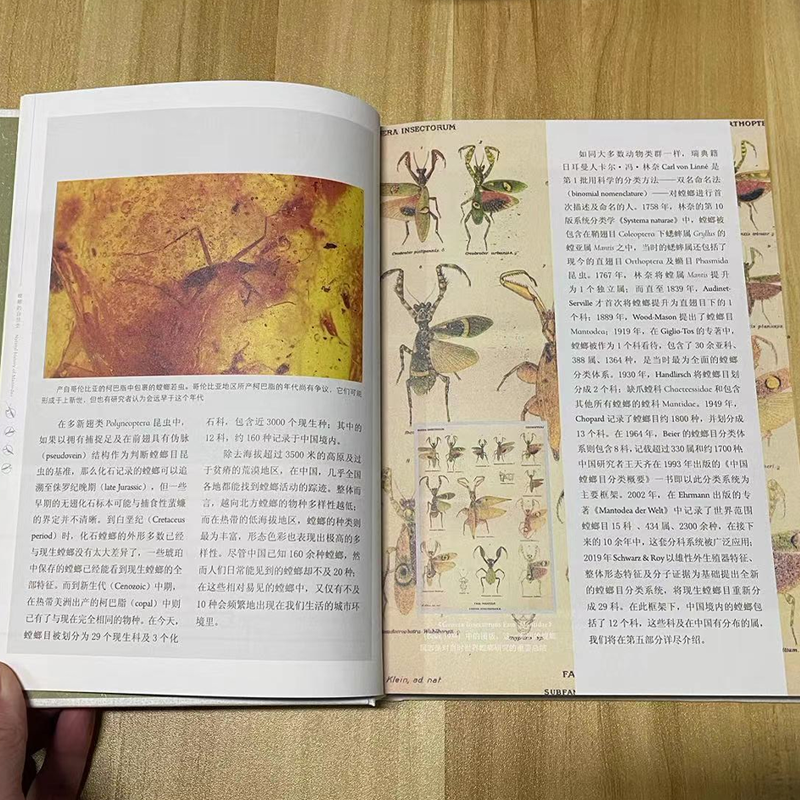 产自哥伦比亚的柯巴脂中包裹的螳螂若虫。哥伦比亚地区所产柯巴脂的年代尚有争议，它们可能
形成于上新世，但也有研究者认为会远早于这个年代
在多新翅类 Polyneoptera 昆虫中，
如果以拥有捕捉足及在前翅具有伪脉
（pseudovein）结构作为判断螳螂目昆
虫的基准，那么化石记录的螳螂可以追
溯至侏罗纪晚期（late Jurassic），但一些
早期的无翅化石标本可能与捕食性蜚蠊
的界定并不清晰。到白垩纪（Cretaceus
period）时，化石螳螂的外形多数已经
与现生螳螂没有太大差异了，一些琥珀
中保存的螳螂已经能看到现生螳螂的全
部特征。而到新生代（Cenozoic）中期，
在热带美洲出产的柯巴脂（copal）中则
已有了与现在完全相同的物种。在今天，
螳螂目被划分为 29 个现生科及 3 个化
石科，包含近 3000 个现生种；其中的
12 科，约 160 种记录于中国境内。
除去海拔超过 3500 米的高原及过
于贫瘠的荒漠地区，在中国，几乎全国
各地都能找到螳螂活动的踪迹。整体而
言，越向北方螳螂的物种多样性越低；
而在热带的低海拔地区，螳螂的种类则
最为丰富，形态色彩也表现出极高的多
样性。尽管中国已知 160 余种螳螂，然
而人们日常能见到的螳螂却不及 20 种；
在这些相对易见的螳螂中，又仅有不及
10 种会频繁地出现在我们生活的城市环
境里。
ERA INSECTORUM
RTHOPTE
Klein, ad. nat.
FA
SUBFAM
如同大多数动物类群一样，瑞典籍
日耳曼人卡尔·冯·林奈 Carl von Linné 是
第 1 批用科学的分类方法——双名命名法
（binomial nomenclature）——对螳螂进行首
次描述及命名的人。1758 年，林奈的第 10
版系统分类学《Systema naturae》中，螳螂被
包含在鞘翅目 Coleoptera 下蟋蟀属 Gryllus 的
螳亚属 Mantis 之中，当时的蟋蟀属还包括了
现今的直翅目 Orthoptera 及䗛目 Phasmida
昆虫。1767 年，林奈将螳属 Mantis 提升
为 1 个独立属；而直至 1839 年，Audinet-
Serville 才首次将螳螂提升为直翅目下的 1
个科；1889 年，Wood-Mason 提出了螳螂目
Mantodea；1919 年，在 Giglio-Tos 的专著中，
螳螂被作为 1 个科看待，包含了 30 余亚科、
388 属、1364 种，是当时最为全面的螳螂
分类体系。1930 年，Handlirsch 将螳螂目划
分成 2 个科；缺爪螳科 Chaeteessidae 和包含
其他所有螳螂的螳科 Mantidae。1949 年，
Chopard 记录了螳螂目约 1800 种，并划分成
13 个科。在 1964 年，Beier 的螳螂目分类体
系则包含 8 科，记载超过 330 属和约 1700 种；
中国研究者王天齐在 1993 年出版的《中国
螳螂目分类概要》一书即以此分类系统为
主要框架。2002 年，在 Ehrmann 出版的专
著《Mantodea der Welt》中记录了世界范围
螳螂目 15 科、434 属、2300 余种，在接下
来的 10 余年中，这套分科系统被广泛应用；
2019 年 Schwarz & Roy 以雄性外生殖器特征、
整体形态特征及分子证据为基础提出全新
的螳螂目分类系统，将现生螳螂目重新分
成 29 科。在此框架下，中国境内的螳螂包
括了 12 个科，这些科及在中国有分布的属，
我们将在第五部分详尽介绍。